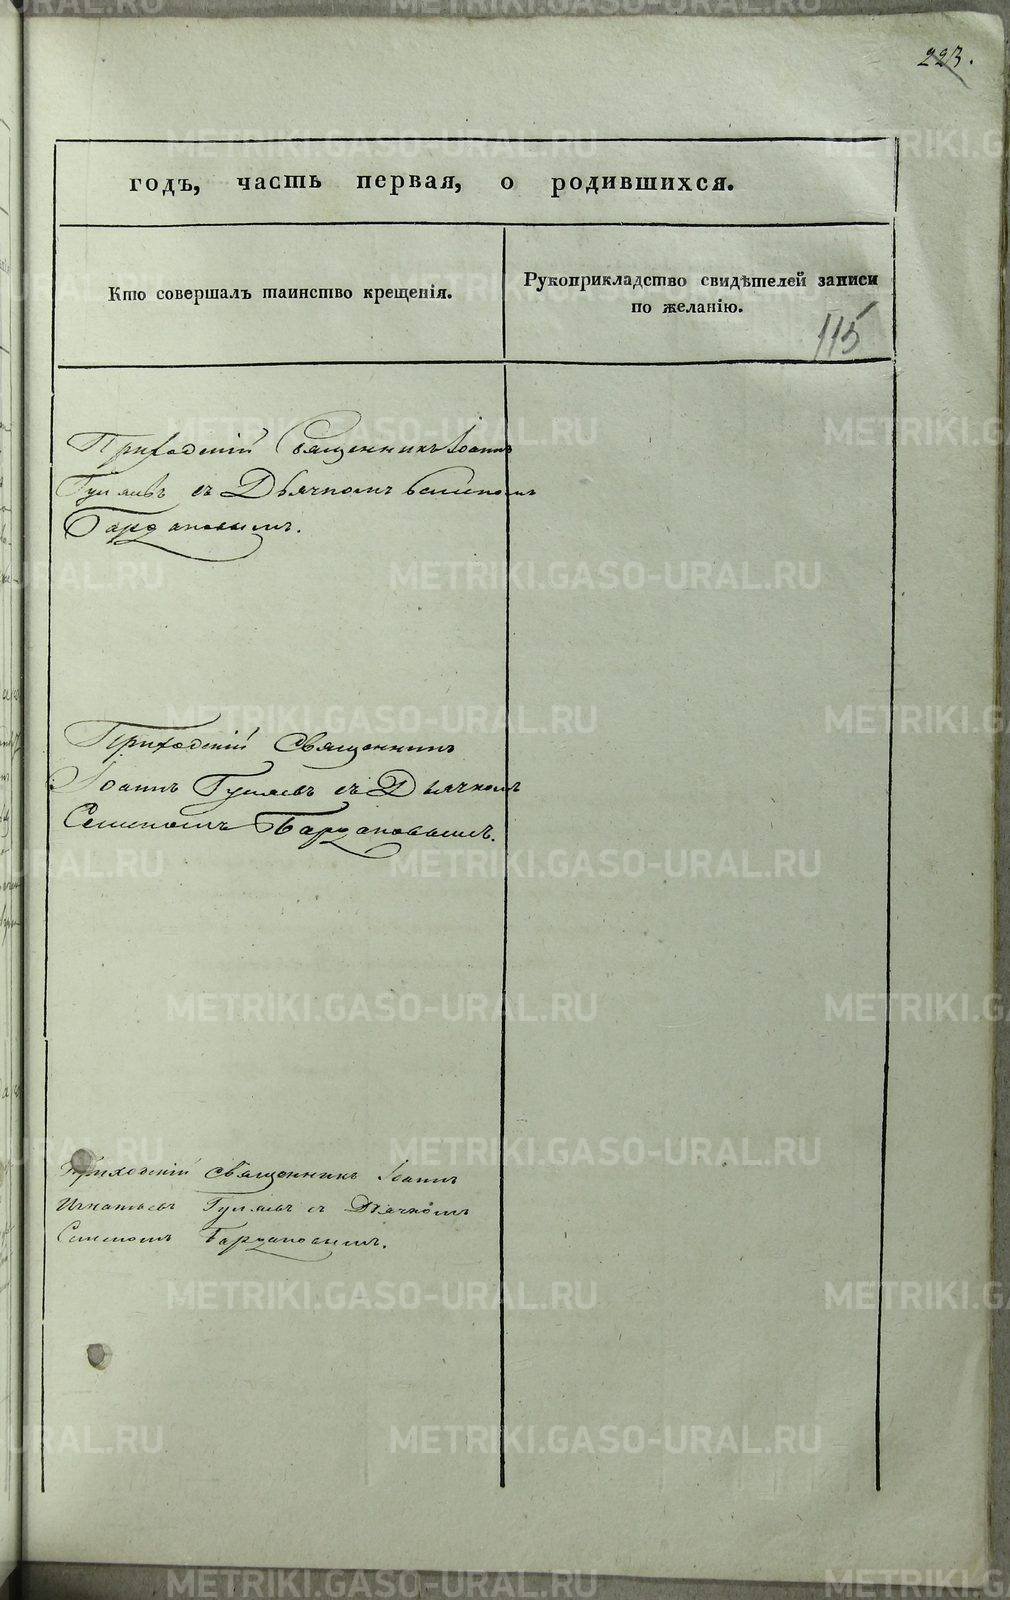 223.
годъ, часть первая, о родившихся.
Кто совершалъ таинство крещенія.
Рукоприкладство свидѣтелей записи
по желанію.
115
Приходскій Священникъ Іоаннъ
Гуляевъ съ Дьячкомъ Семеномъ
Бардановымъ.
Приходскій Священникъ
Іоаннъ Гуляевъ съ Дьячкомъ
Семеномъ Бардановымъ.
Приходскій Священникъ Іоаннъ
Игнатьевъ Гуляевъ съ Дьячкомъ
Семеномъ Бардановымъ.
METRIKI.GASO-URAL.RU